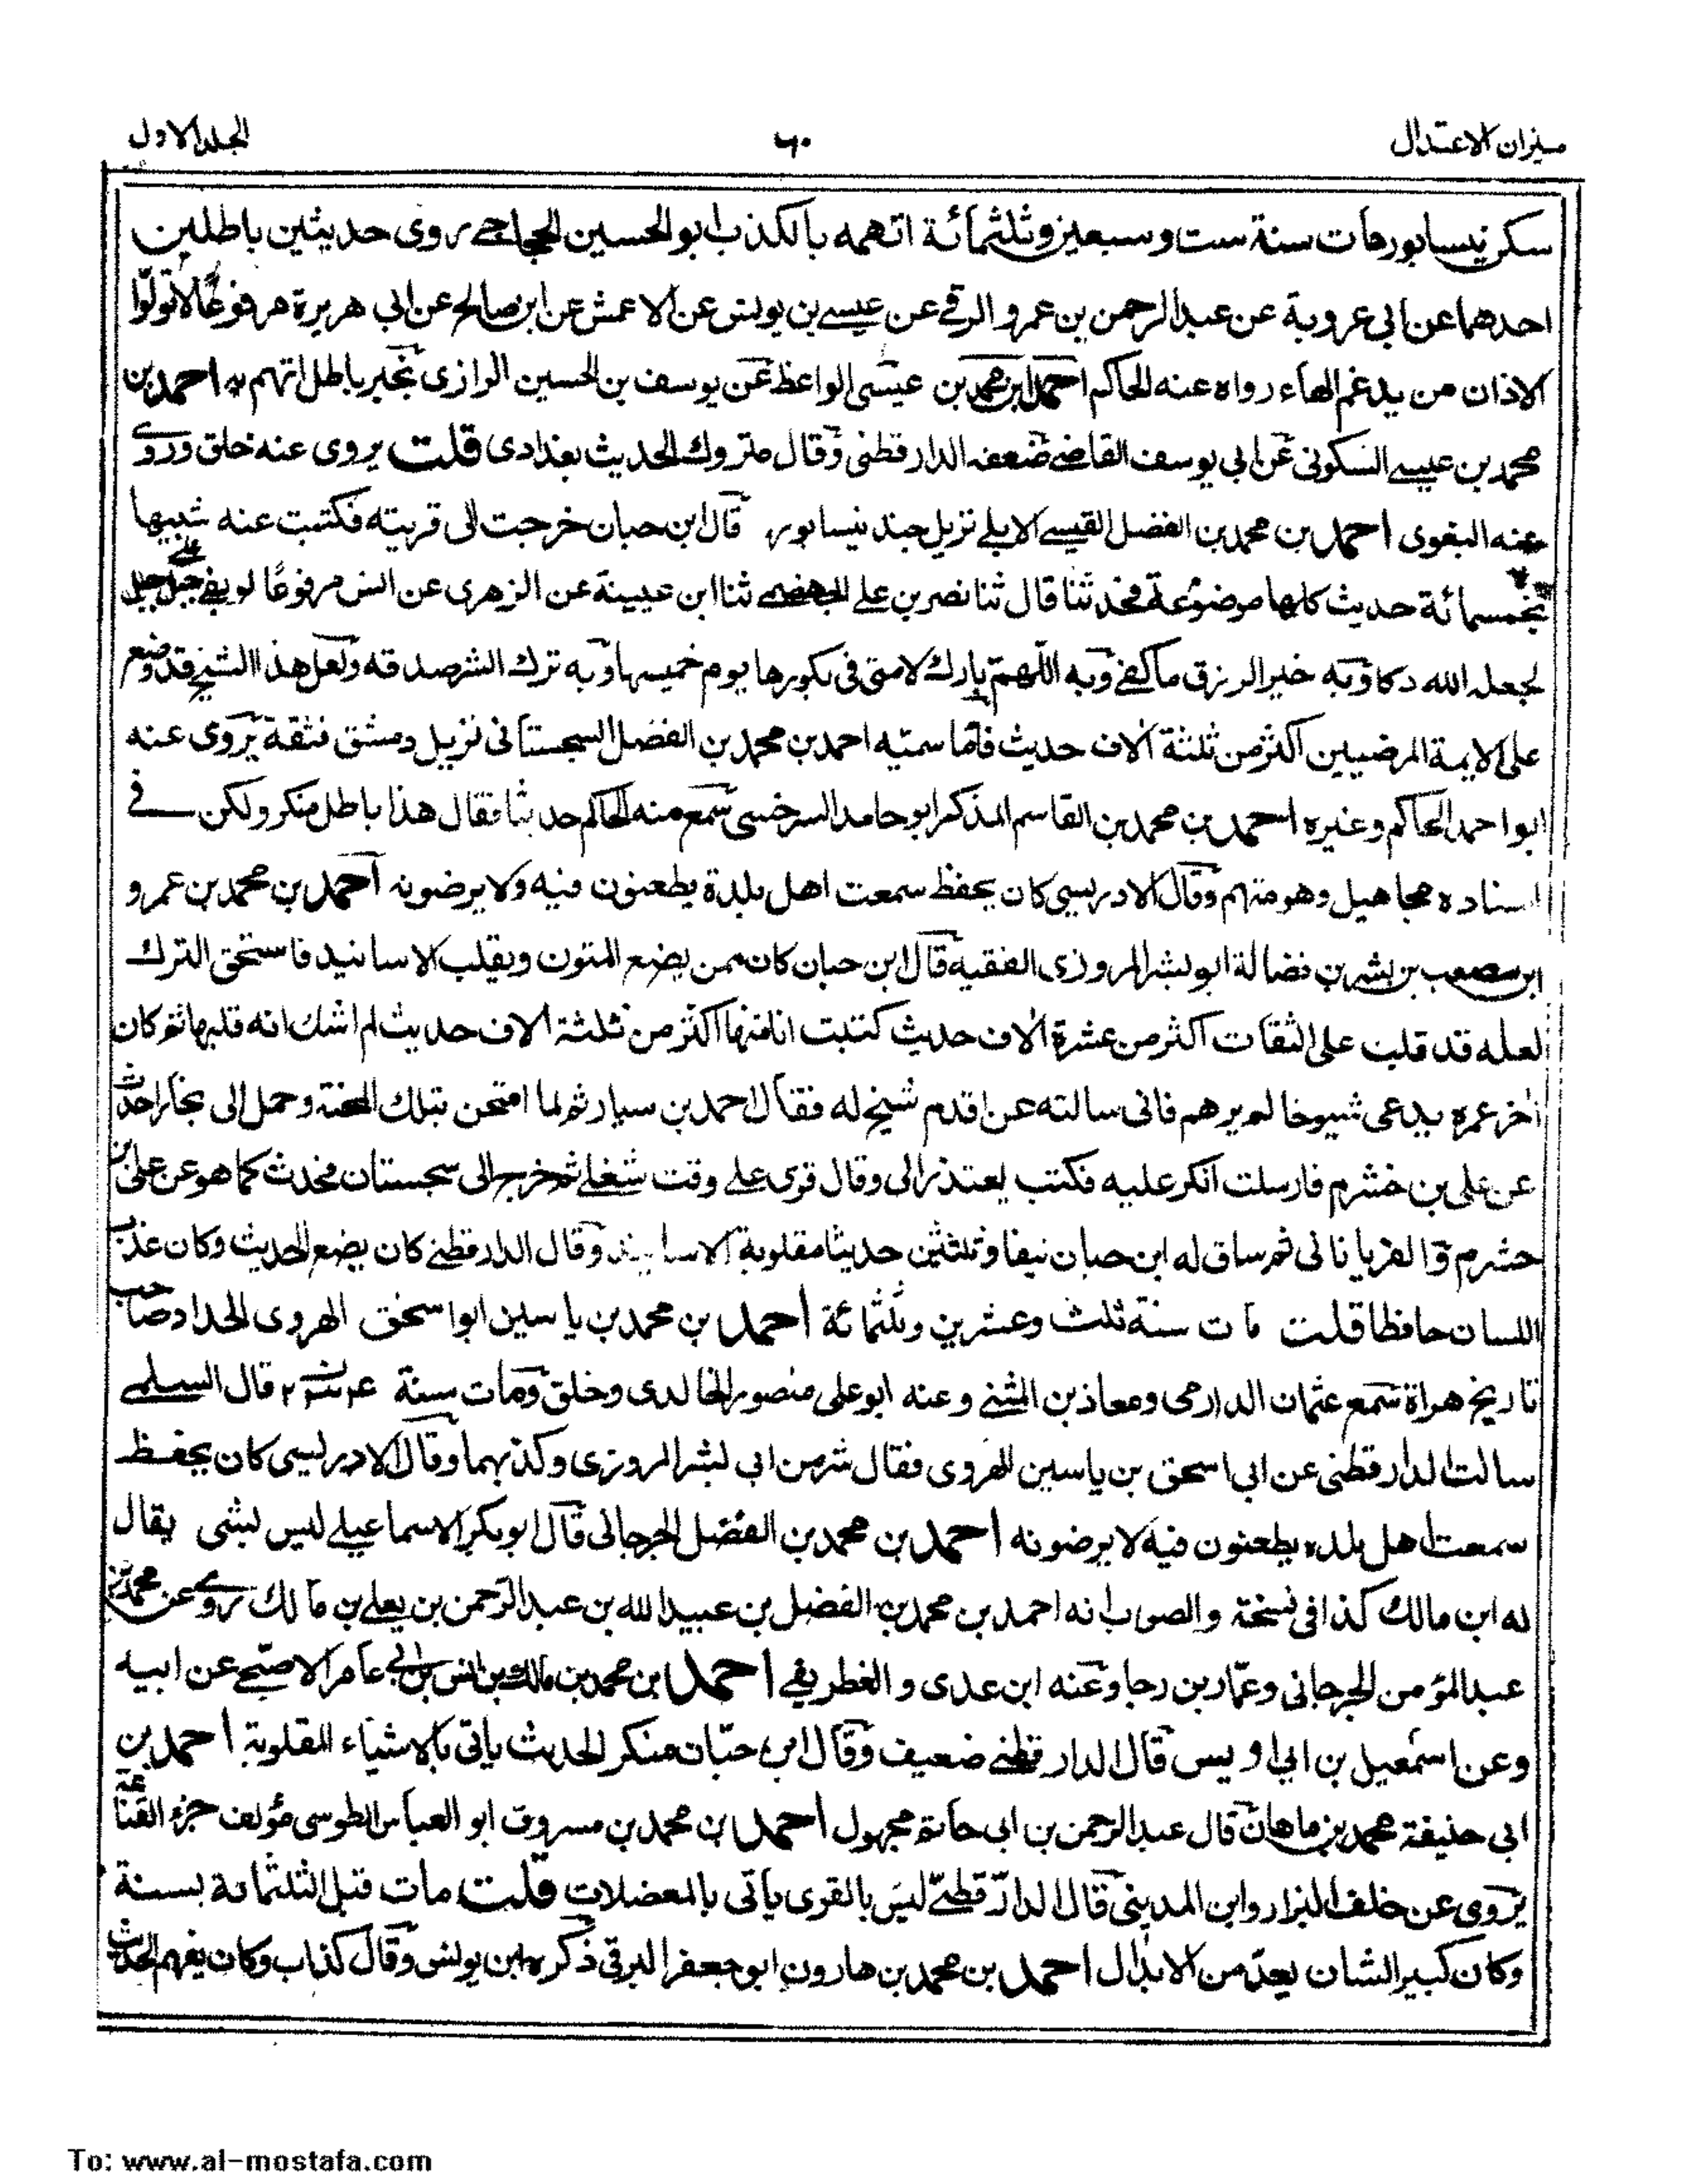 ميزان الاعتدال
٦٠
الجلد الاول
سكن نيسابور مات سنة ست وسبعين وثلثمائة اتهمه بالكذب ابو الحسين الحجاجى روى حديثين باطلين
احدهما عن ابى عروبة عن عبد الرحمن بن عمرو الرقى عن عيسى بن يونس عن الاعمش عن ابى صالح عن ابى هريرة مرفوعًا لا تولوا
الاذان من يدغم الهاء رواه عنه الحاكم احمد بن محمد بن عيسى الواعظ عن يوسف بن الحسين الرازى بخبر باطل اتهم به احمد بن
محمد بن عيسى السكونى عن ابى يوسف القاضى ضعفه الدارقطنى وقال متروك الحديث بغدادى قلت يروى عنه خلق وروى
عنه البغوى احمد بن محمد بن الفضل القيسى الايلى نزيل جند نيسابور قال ابن حبان خرجت الى قريته فكتبت عنه شبيها
بخمسمائة حديث كلها موضوعة فحدثنا قال ثنا نصر بن على الجهضمى ثنا ابن عيينة عن الزهرى عن انس مرفوعًا لو بغى جبل على جبل
لجعله الله دكا وبه خير الرزق ما كفى وبه اللهم بارك لامتى فى بكورها يوم خميسها وبه ترك الشر صدقه ولعل هذا الشيخ قد وضع
على الايمة المرضيين اكثر من ثلثة آلاف حديث فأما سميّه احمد بن محمد بن الفضل السجستانى نزيل دمشق فثقة يروى عنه
ابو احمد الحاكم وغيره احمد بن محمد بن القاسم المذكر ابو حامد السرخسى سمع منه الحاكم حديثا فقال هذا باطل منكر ولكن فى
اسناده مجاهيل وهو متهم وقال الادريسى كان يحفظ سمعت اهل بلدة يطعنون فيه ولا يرضونه احمد بن محمد بن عمرو
ابن مصعب بن بشر بن فضالة ابو بشر المروزى الفقيه قال ابن حبان كان ممن يضع المتون ويقلب الاسانيد فاستحق الترك
لعله قد قلب على الثقات اكثر من عشرة آلاف حديث كتبت انا منها اكثر من ثلثة الاف حديث لم اشك انه قلبها ثم كان
آخر عمره يدعى شيوخا لم يرهم فانى سالته عن اقدم شيخ له فقال احمد بن سيار ثم لما امتحن بتلك المحنة وحمل الى بخارا حدث
عن على بن خشرم فارسلت انكر عليه فكتب يعتذر الى وقال قرى على وقت شغلى ثم خرج الى سجستان فحدث كما هو عن على بن
خشرم والفريانانى ثم ساق له ابن حبان نيفا وثلثين حديثا مقلوبة الاسانيد وقال الدارقطنى كان يضع الحديث وكان عذب
اللسان حافظا قلت مات سنة ثلث وعشرين وثلثمائة احمد بن محمد بن ياسين ابو اسحق الهروى الحداد صاحب
تاريخ هراة سمع عثمان الدارمى ومعاذ بن المثنى وعنه ابو على منصور الخالدى وخلق ومات سنة قال السلمى
سالت الدارقطنى عن ابى اسحق بن ياسين الهروى فقال شر من ابى بشر المروزى وكذبهما وقال الادريسى كان يحفظ
سمعت اهل بلده يطعنون فيه لا يرضونه احمد بن محمد بن الفضل الجرجانى قال ابو بكر الاسماعيلى ليس بشى يقال
له ابن مالك كذا فى نسخة والصواب انه احمد بن محمد بن الفضل بن عبيد الله بن عبد الرحمن بن يعلى بن مالك روى عن محمد بن
عبد المؤمن الجرجانى وعمار بن رجا وعنه ابن عدى والغطريفى احمد ابن محمد بن مالك بن انس بن ابى عامر الاصبحى عن ابيه
وعن اسمعيل بن ابى اويس قال الدارقطنى ضعيف وقال ابن حبّان منكر الحديث ياتى بالاشياء المقلوبة احمد بن
ابى حنيفة محمد بن ماهان قال عبد الرحمن بن ابى حاتم مجهول احمد بن محمد بن مسروق ابو العباس الطوسى مؤلف جزء القناعة
يروى عن خلف البزار وابن المدينى قال الدارقطنى ليس بالقوى ياتى بالمعضلات قلت مات قبل الثلثمائة بسنة
وكان كبير الشان يعدّ من الابدال احمد بن محمد بن هارون ابو جعفر البرقى ذكره ابن يونس وقال كذاب وكان يفهم الحديث
To: www.al-mostafa.com